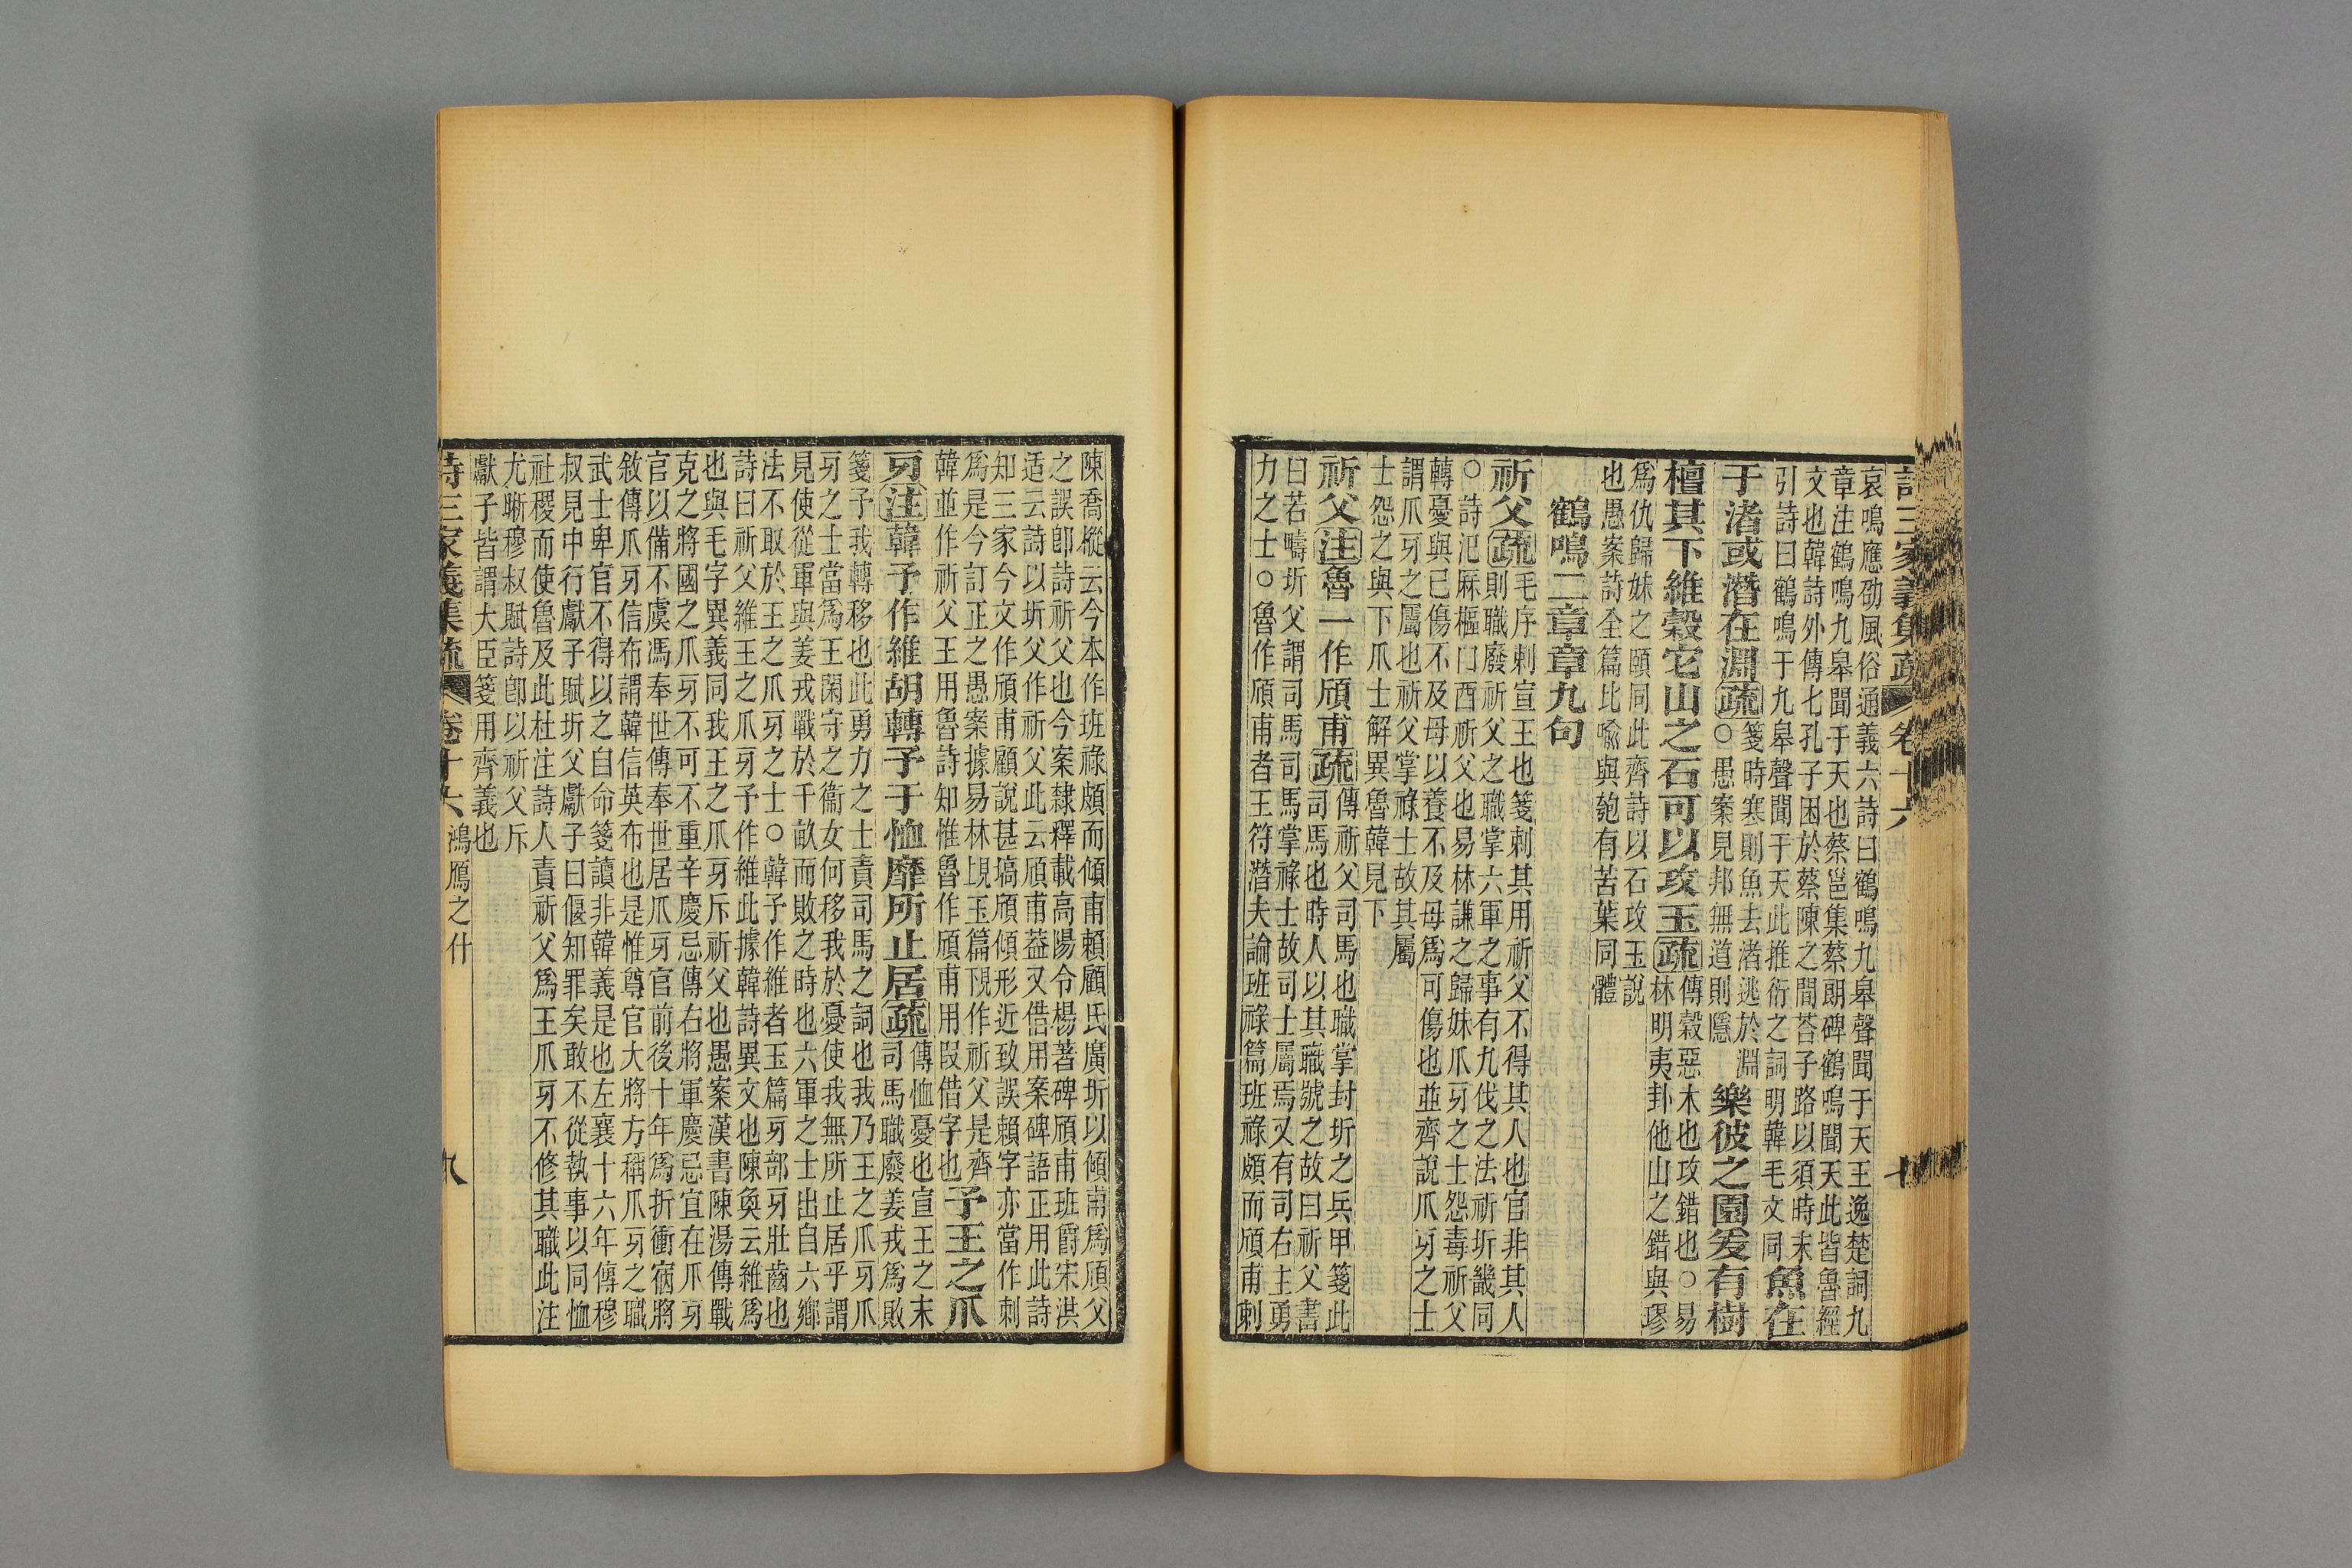 詩三家義集疏 卷十六 七
哀鳴應劭風俗通義六詩曰鶴鳴九皋聲聞于天王逸楚詞九
章注鶴鳴九皋聞于天也蔡邕集蔡朗碑鶴鳴聞天此皆魯經
文也韓詩外傳七孔子困於蔡陳之間荅子路以須時末
引詩曰鶴鳴于九皋聲聞于天此推衍之詞明韓毛文同
魚在
于渚或潛在淵疏
箋時寒則魚去渚逃於淵
○愚案見邦無道則隱
樂彼之園爰有樹
檀其下維穀它山之石可以攻玉疏
傳穀惡木也攻錯也○易
林明夷卦他山之錯與璆
爲仇歸妹之頤同此齊詩以石攻玉說
也愚案詩全篇比喻與匏有苦葉同體
鶴鳴二章章九句
祈父疏
毛序刺宣王也箋刺其用祈父不得其人也官非其人
則職廢祈父之職掌六軍之事有九伐之法祈圻畿同
○詩汜厤樞曰酉祈父也易林謙之歸妹爪牙之士怨毒祈父
轉憂與已傷不及母以養不及母爲可傷也並齊說爪牙之士
謂爪牙之屬也祈父掌祿士故其屬
士怨之與下爪士解異魯韓見下
祈父注魯一作頎甫疏
傳祈父司馬也職掌封圻之兵甲箋此
司馬也時人以其職號之故曰祈父書
曰若疇圻父謂司馬司馬掌祿士故司士屬焉又有司右主勇
力之士○魯作頎甫者王符潛夫論班祿篇班祿頗而頎甫刺
陳喬樅云今本作班祿頗而傾甫賴顧氏廣圻以傾甫爲頎父
之誤卽詩祈父也今案隸釋載高陽令楊著碑頎甫班爵宋洪
适云詩以圻父作祈父此云頎甫葢又借用案碑語正用此詩
知三家今文作頎甫顧說甚塙頎傾形近致誤賴字亦當作刺
爲是今訂正之愚案據易林垷玉篇覑作祈父是齊
韓並作祈父王用魯詩知惟魯作頎甫用叚借字也
予王之爪
牙注韓予作維胡轉予于恤靡所止居疏
傳恤憂也宣王之末
司馬職廢姜戎爲敗
箋予我轉移也此勇力之士責司馬之詞也我乃王之爪牙爪
牙之士當爲王閑守之衞女何移我於憂使我無所止居乎謂
見使從軍與姜戎戰於千畝而敗之時也六軍之士出自六鄉
法不取於王之爪牙之士○韓予作維者玉篇牙部牙壯齒也
詩曰祈父維王之爪牙予作維此據韓詩異文也陳奐云維爲
也與毛字異義同我王之爪牙斥祈父也愚案漢書陳湯傳戰
克之將國之爪牙不可不重辛慶忌傳右將軍慶忌宜在爪牙
官以備不虞馮奉世傳奉世居爪牙官前後十年爲折衝宿將
敘傳爪牙信布謂韓信英布也是惟尊官大將方稱爪牙之職
武士卑官不得以之自命箋讀非韓義是也左襄十六年傳穆
叔見中行獻子賦圻父獻子曰偃知罪矣敢不從執事以同恤
社稷而使魯及此杜注詩人責祈父爲王爪牙不修其職此注
尤晰穆叔賦詩卽以祈父斥
獻子皆謂大臣箋用齊義也
詩三家義集疏 卷十六 鴻鴈之什 九